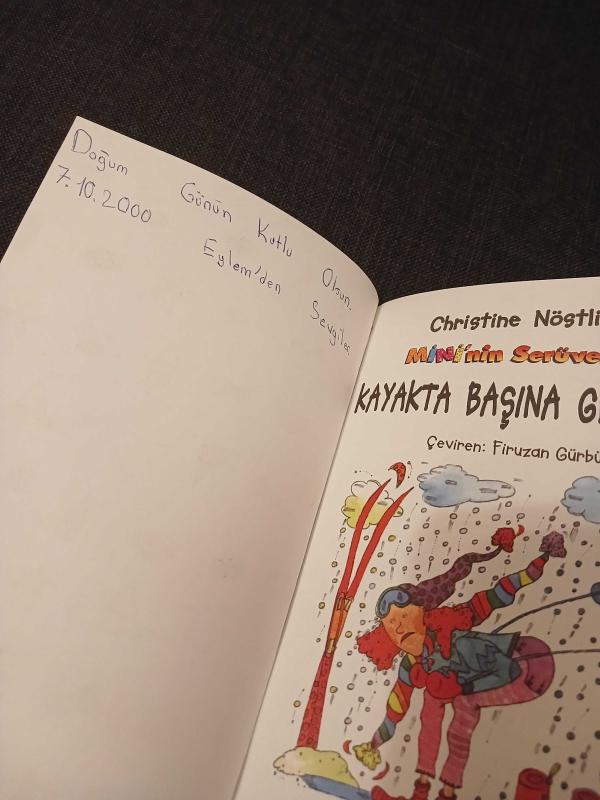 Doğum Günün Kutlu Olsun.
7.10.2000 Eylem'den Sevgiler
Christine Nöstli
MİNİ'nin Serüve
KAYAKTA BAŞINA G
Çeviren: Firuzan Gürbü